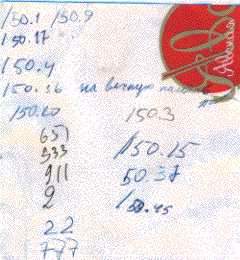 150.1 150.9
150.17
150.4
150.36 на вечную
150.20 150.3
651
333 150.15
911 50.37
2 150.45
22
777